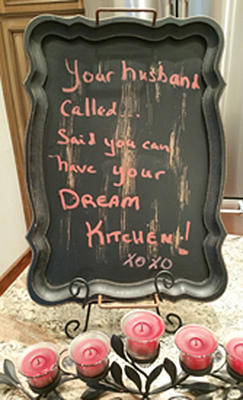 Your husband
Called...
Said you can
have your
DREAM
KITCHEN!
XOXO